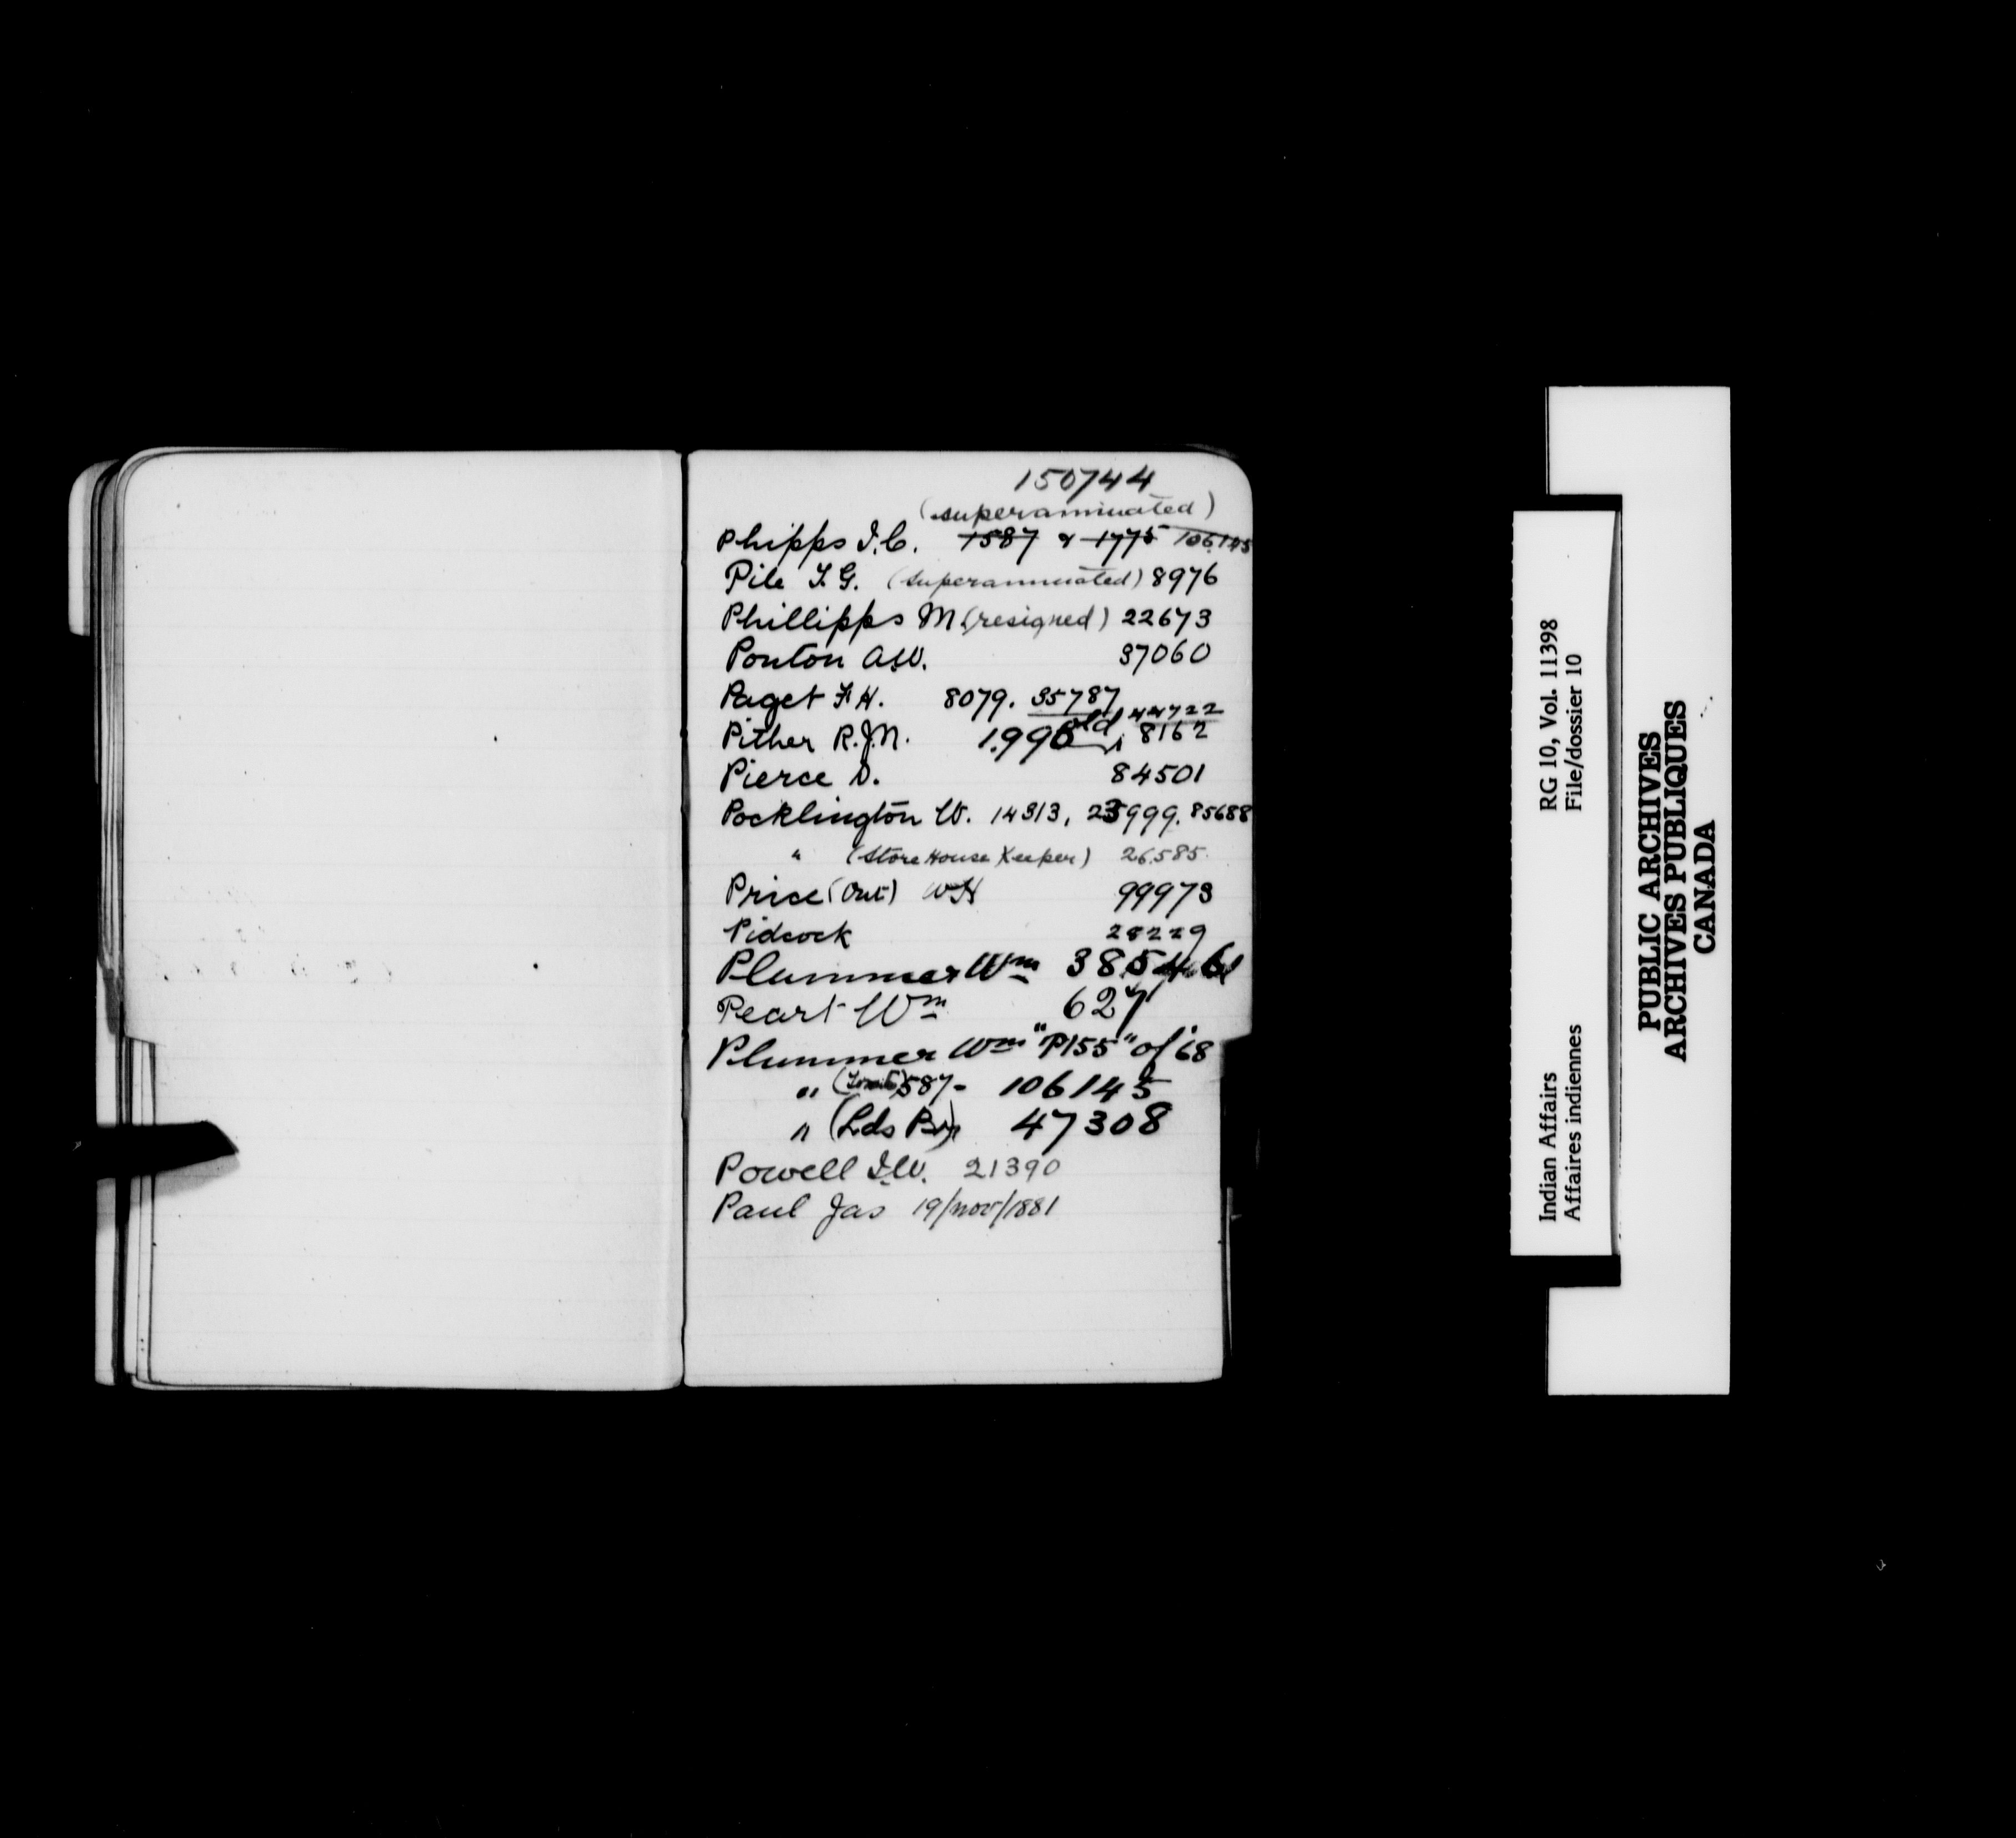 150744
(superannuated)
Phipps J.C. 1587 & 1775 106.145
Pile T.G. (superannuated) 8976
Phillipps M. (resigned) 22673
Ponton A.W. 37060
Paget F.H. 8079. 35787
44722
Pither R.J.N. 1.996 old, 8162
Pierce D. 84501
Pocklington W. 14313, 23999. 85688
" (Store House Keeper) 26.585.
Price (Ont) W H 99973
Pidcock 28229
Plummer Wm 385
Peart Wm 627
Plummer Wm "P155" of '68
" 587 - 106145
" (Lds Br) 47308
Powell I.W. 21390
Paul Jas 19/Nov/1881
Indian Affairs RG 10, Vol. 11398
Affaires indiennes File/dossier 10
PUBLIC ARCHIVES
ARCHIVES PUBLIQUES
CANADA